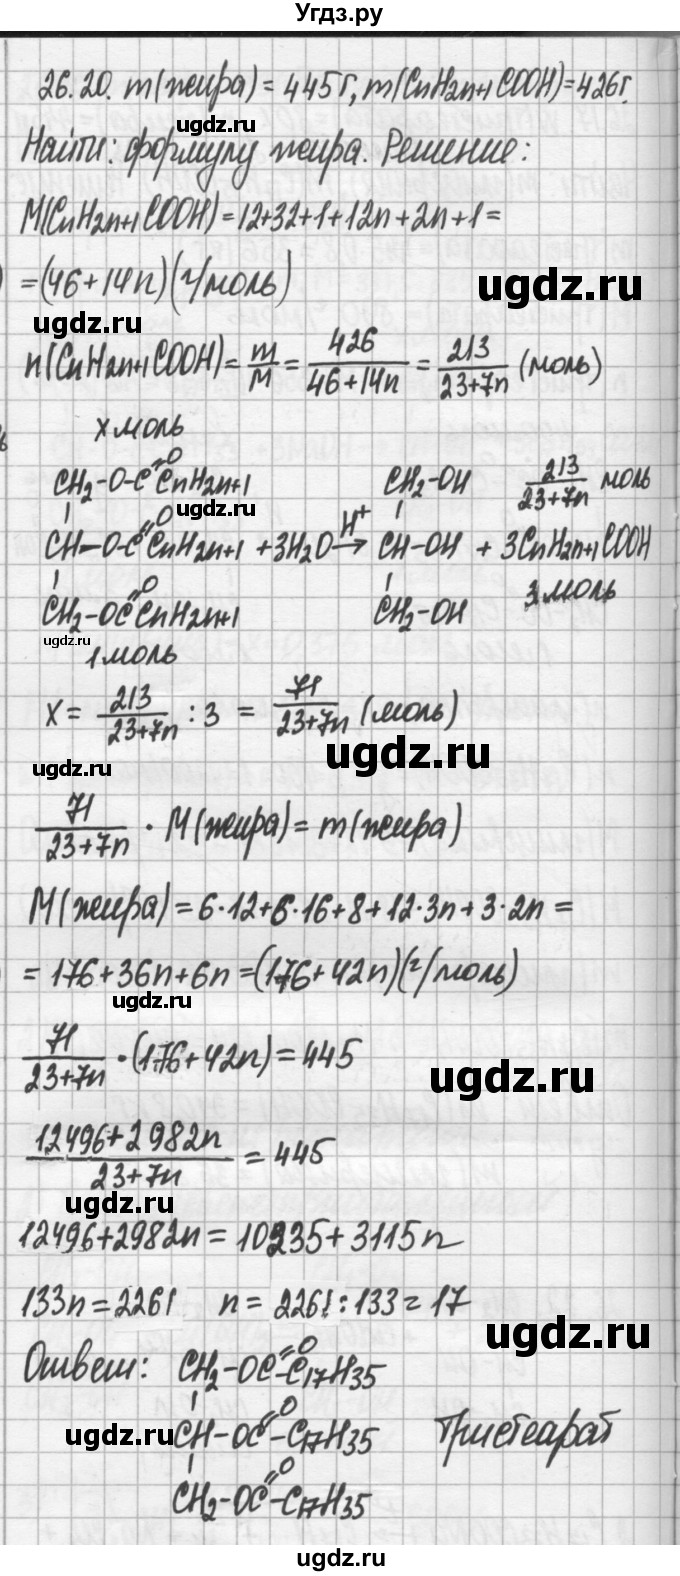 Угдз.ру
26.20. m(жира) = 445г, m(CnH2n+1COOH)=426г.
ugdz.ru
Найти: формулу жира. Решение:
M(CnH2n+1COOH)=12+32+1+12n+2n+1=
=(46+14n)(г/моль)
ugdz.ru
ugdz.ru
n(CnH2n+1COOH)= m/M = 426/(46+14n) = 213/(23+7n) (моль)
x моль
CH2-O-C=O CnH2n+1 CH2-OH 213/(23+7n) моль
ugdz.ru
CH-O-C=O CnH2n+1 +3H2O H+→ CH-OH + 3CnH2n+1COOH
CH2-OC=O CnH2n+1 CH2-OH 3 моль
ugdz.ru
1 моль
x = 213/(23+7n) : 3 = 71/(23+7n) (моль)
ugdz.ru
ugdz.ru
71/(23+7n) · M(жира) = m(жира)
M(жира)=6·12+6·16+8+12·3n+3·2n=
=176+36n+6n=(176+42n)(г/моль)
ugdz.ru
71/(23+7n) ·(176+42n)=445
ugdz.ru
(12496+2982n)/(23+7n) = 445
ugdz.ru
12496+2982n=10235+3115n
133n=2261 n= 2261:133=17
ugdz.ru
Ответ: CH2-OC=O-C17H35
ugdz.ru
CH-OC=O-C17H35 Тристеарат
CH2-OC=O-C17H35
ugdz.ru